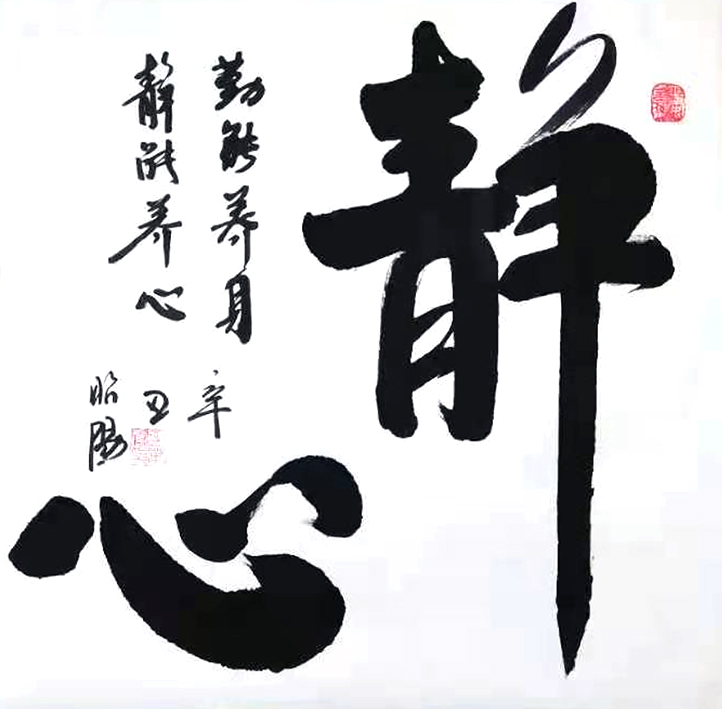 静
心
勤能养身
静能养心
辛
丑
昭陽